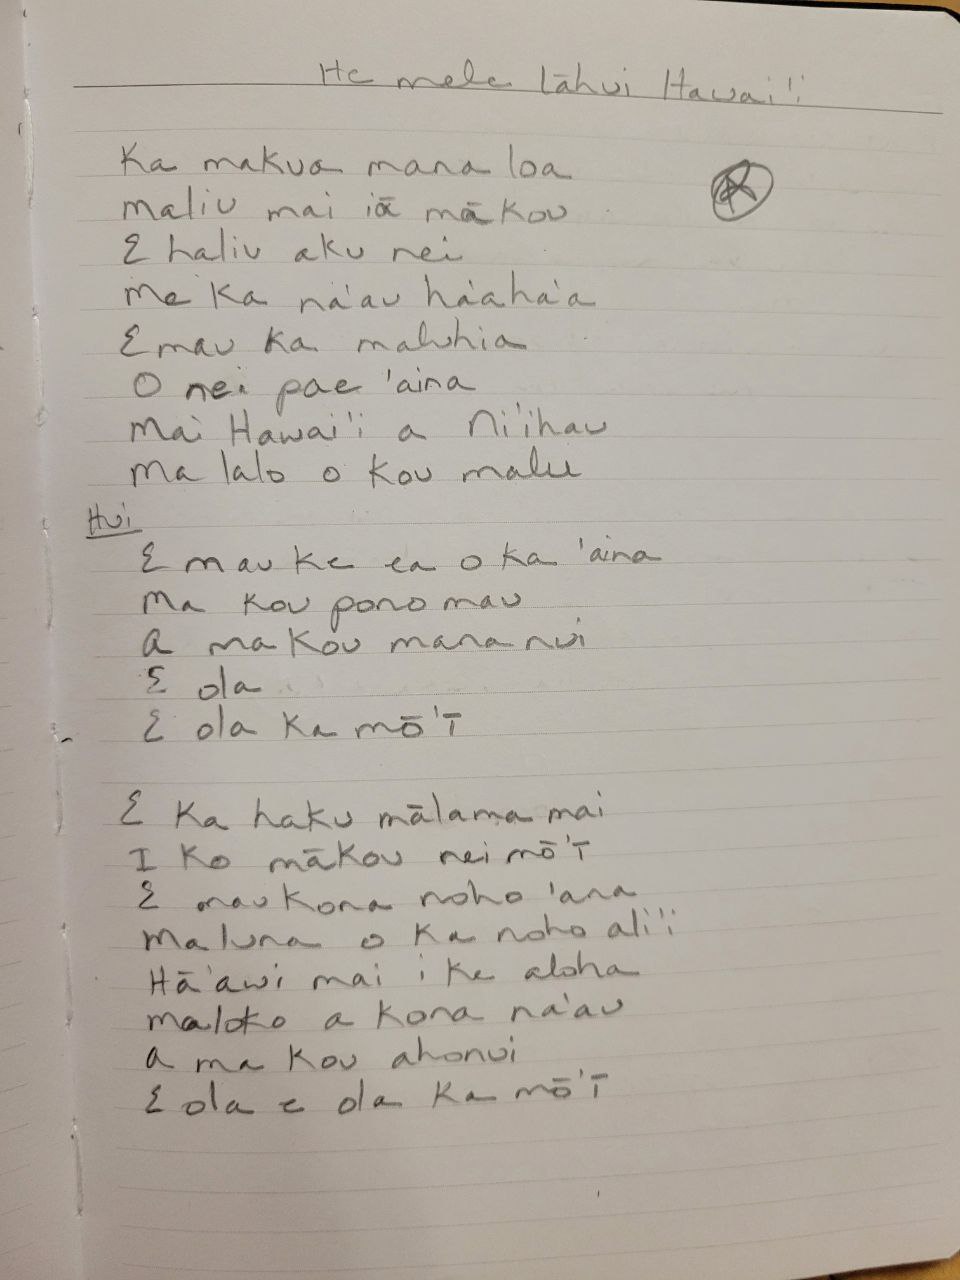 He mele lāhui Hawai'i
Ka makua mana loa
maliu mai iā mākou
E haliu aku nei
me Ka na'au ha'aha'a
E mau ka maluhia
O nei pae 'aina
Mai Hawai'i a Ni'ihau
Ma lalo o kou malu
Hui
E mau ke ea o ka 'aina
Ma kou pono mau
A ma kou mana nui
E ola
E ola ka mō'ī
E Ka haku mālama mai
I Ko mākou nei mō'ī
E mau kona noho 'ana
Maluna o ka noho ali'i
Hā'awi mai i ke aloha
maloko a kona na'au
A ma kou ahonui
E ola e ola ka mō'ī